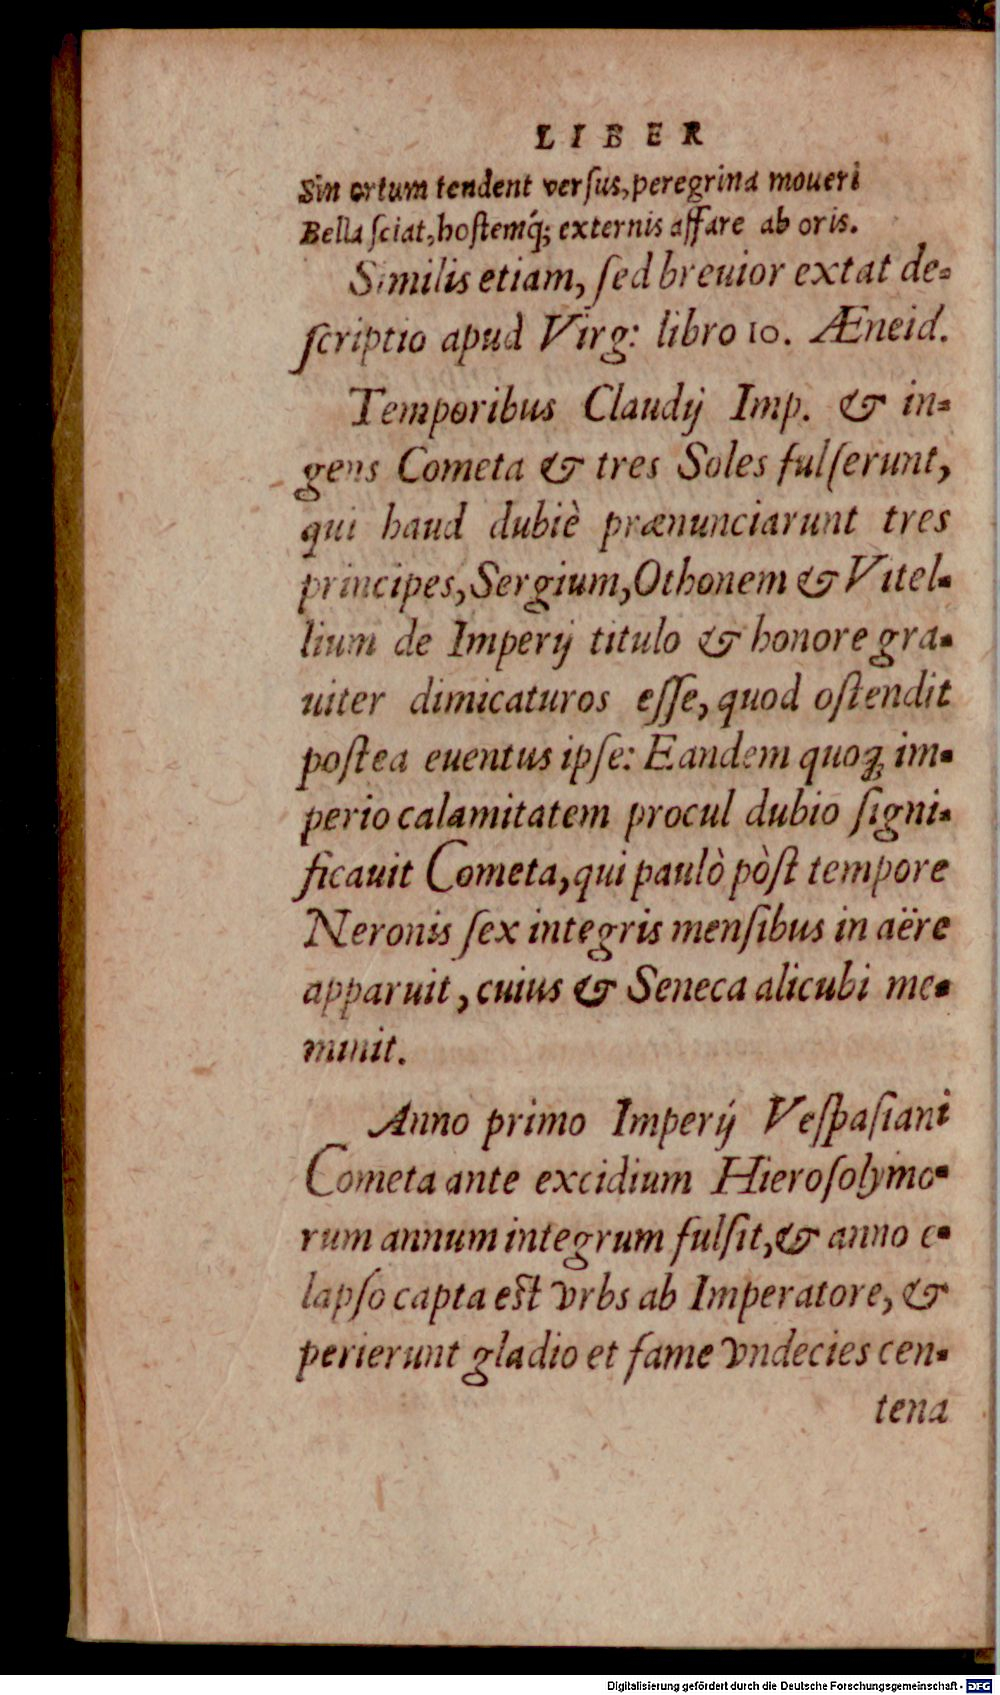 LIBER
Sin ortum tendent verſus, peregrina moueri
Bella ſciat, hoſtemq́; externis aſſare ab oris.
Similis etiam, ſed breuior extat de-
ſcriptio apud Virg: libro 10. Æneid.
Temporibus Claudij Imp. & in-
gens Cometa & tres Soles fulſerunt,
qui haud dubiè prænunciarunt tres
principes, Sergium, Othonem & Vitel-
lium de Imperij titulo & honore gra-
uiter dimicaturos eſſe, quod oſtendit
poſtea euentus ipſe: Eandem quoq; im-
perio calamitatem procul dubio ſigni-
ficauit Cometa, qui paulò pòſt tempore
Neronis ſex integris menſibus in aëre
apparuit, cuius & Seneca alicubi me-
minit.
Anno primo Imperij Veſpaſiani
Cometa ante excidium Hieroſolymo-
rum annum integrum fulſit, & anno e-
lapſo capta eſt vrbs ab Imperatore, &
perierunt gladio et fame vndecies cen-
tena
Digitalisierung gefördert durch die Deutsche Forschungsgemeinschaft - DFG